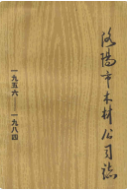 洛陽市木材公司志
一九五六——一九八四